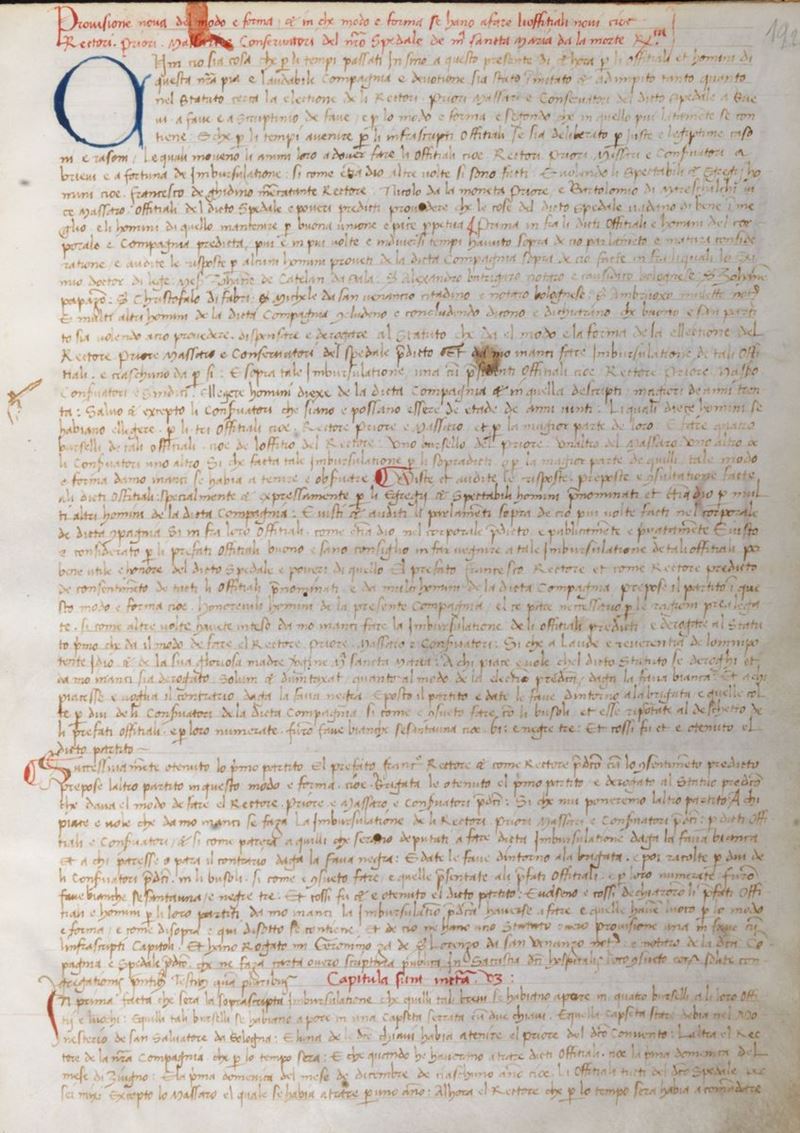 192
Provisione nova del modo e forma & in che modo e forma se hano afare li offitiali novi cioe
Rectori. Priori. Massari e Conservatori del nro Spedale de m sancta Maria da la morte
in cio sia cosa che p li tempi passati In sino a questo presente di & hora p li offitiali et homini di
questa nra pia e laudabile Compagnia e devotione sia stato & adimpito tanto quanto
nel Statuto circa la electione de li Rectori. Priori Massari e Conservatori del dicto Spedale a
a fave e a scruptinio de fave e p lo modo e forma e segondo che in quello piu latamete se con
tiene. che p li tempi avenire p li infrascripti Offitiali se sia deliberato p juste e legiptime casó
ni e rasoni. Le quali moveno li animi loro a dover fare li Offitiali cioe Rectori Priori Massari e Confvatori
brievi e a fortuna de Imbursulatione: si come dio altre volte si sono facti: E volendo li Spectabili & Egregij ho
mini cioe. Francesco de ghidino mcatante Rectore. Nicolo da la moneta Priore. e Bartolomio di
Massaro. Offitiali del dicto Spedale e poveri predicti provedere che le cose del dicto Spedale vadano di bene I me
glio. e li homini di quello mantenere p buona unione e pace ppetua Prima in fra li dicti Officiali e homini del cor
porale e Compagnia predicta, piu e piu volte e in diversi tempi havuto sopra de cio parlameto e matura conside
ratione. e audite le risposte p alcuni homini proveti de la dicta Compagnia sopra de cio facte in fra li quali lo
doctor di lege. Zohane de Catelan da Sala: S Alexandro butrigaro notaro e bolognese: S Zohane
papazo: S Christofalo di Fabri: S Michele da san venancio citadino e notaro bolognese: S Ambruoxo
E multi altri homini de la dicta Compagnia. e concludendo dicono e dichiarano che buono e san parti
to sia volendo acio provedere. dispensare e derogare al Statuto che da el modo e la forma de la ellectione del
Rectore Priore Massaro e Conservatori del spedale pdicto Et da mo manci fare Imbursulatione de tali Offi
tiali. e ciaschuno da p si: E sopra tale Imbursulatione, una cu Offitiali cioe Rectore Priore Massaro
Confvatori e Sindici: Ellegere homini diexe de la dicta Compagnia & in quella descripti, magiori de anni tren
ta: Salvo & excepto li Confvatori che siano e possano essere de etade de anni vinti: Li quali diexe homini se
habiano ellegere. p li tri Offitiali cioe. Rectore Priore e Massaro, et p la magior parte de loro: E fare quatro
burselli de tali offitiali. cioe de loffitio del Rectore. Uno bursello del priore. Unaltro del Massaro. Uno altro de
li Confvatori uno altro. Si che facta tale Imbursulatione p li sopradicti o p la magior parte de quilli, tale modo
e forma damo manci se habia a tenire e obfvare. Viste et audite le risposte, preposte e facte
ali dicti Offitiali: specialmente & expressamente p li Egregij & Spectabili homini pnominati et etia dio p mul
ti altri homini de la dicta Compagnia: E visti & auditi li parlameti sopra de cio piu volte facti nel corporale
de dicta opagnia Si in fra loro Offitiali. come etia dio, nel corporale pdicto, e publicamete e pvatamete E visto
e considerato p li prefati Offitiali buono e sano consiglio in far vegnire a tale Imbursulatione de tali offitiali. per
bene utile e honore del dicto Spedale e poveri di quello El prefato francesco Rectore et come Rectore predicto
de consentimeto de tucti li Offitiali pnominati, e da multi homini de la dicta Compagnia. Prepose il partito I que
sto modo e forma cioe. Honorevili homini de la presente Compagnia, el ce pare necessario p le rasioni pre alega
te. si come altre volte havete inteso da mo manci fare la Imbursulatione de li offitiali predicti e derogare al Statu
to pmo che da il modo de fare el Rectore, Priore, Massaro e Confvatori: Si che a Laude e reverentia de lomnipo
tente Idio & de la sua gloriosa madre Vgine M sancta Maria: A chi piace e vole chel dicto Statuto se deroghi et
da mo manci sia derogato. Solum & dumtaxat, quanto al modo de la electio predca, daga la fava bianca: Et a chi
piacesse e voglia il contrario daga la fava negra: E posto il partito e date le fave dintorno a la brigata e quelle col
te p dui de li Confvatori de la dicta Compagnia si come e fare co li busoli. et esse riportate al deschetto de
li prefati offitiali. e p loro numerate. furo fave bianche sesantauna cioe. bi: e negre tre: Et cossi fu et e otenuto el
dicto partito
Sucessivamete otenuto lo pmo partito. El prefato franc Rectore & come Rectore pdcto cu lo predicto
prepose laltro partito in questo modo e forma. cioe. Brigata le otenuto el pmo partito e derogato al Statuo predco
che dava el modo de fare el Rectore. Priore. e Massaro e Confvatori pdcti: Si che nui poneremo laltro partito A chi
piace e vole che da mo manci se faza la Imbursulatione de li Rectori. Priori Massari e Confvatori pdcti: p dicti Offi
tiali e Confvatori. & si come parera a quilli che serano deputati a fare dicta Imbursulatione daga la fava bianca
Et a chi paresse o para il contrario daga la fava negra: E date le fave dintorno ala brigata. e poi racolte p dui de
li Confvatori pdcti. in li busoli. si come e fare, e quelle psentate ali pfati Offitiali: e p loro numerate. furo
fave bianche sesantauna, e negre tre. Et cossi fu & e otenuto el dicto partito: e cossi dechiaroro li pfati Offi
tiali e homini p li loro partiti da mo manci la Imbursulatio pdcta havesse a fare e quelle p lo modo
e forma, e come di sopra: qui disotto se contiene: Et de cio ne hano uno Statuto overo provisione una in fra cu
infrascripti Capitoli. Et hano Rogato mi Geronimo za de S Lorenzo da san Venanzo not e notaro de la dca Co
pagnia e Spedale pdcto. che ne faza carta overo scriptura publica
gregationis psentibus Testibus quam pluribus Capitula sunt infra vz:
In prima facta che sera la soprascripta Imbursulatione che quilli tali brevi se habiano apore in quatro burselli ali loro offi
tij e luochi: E quilli tali burselli se habiano apore in una Capseta serrata cu due chiavi. E quella Capseta stare debia nel Mo
nesterio de san Salvatore da Bologna: E luna de le dce chiavi habia a tenire el priore del dco Convento: Laltra el Rec
tore de la nra Compagnia che p lo tempo sera: E che quando he havorino a trare dicti Offitiali. cioe la pma domenica del
mese di Zugno: E la pma domenica del mese de dicembre de ciaschuno ano cioe. li Offitiali tucti del dco Spedale per
sei misi Excepto lo Massaro el quale se habia a trare p uno ano: Alhora el Rectore che p lo tempo sera habia a comadare